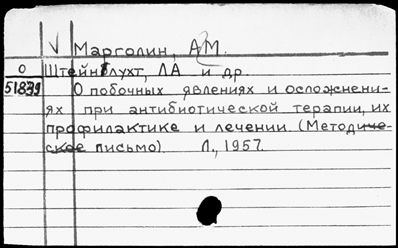 V Марголин, АМ.
О Штейнблухт, ЛА и др.
51839 О побочных явлениях и осложнени-
ях при антибиотической терапии, их
профилактике и лечении. (Методиче-
ское письмо) Л., 1957.